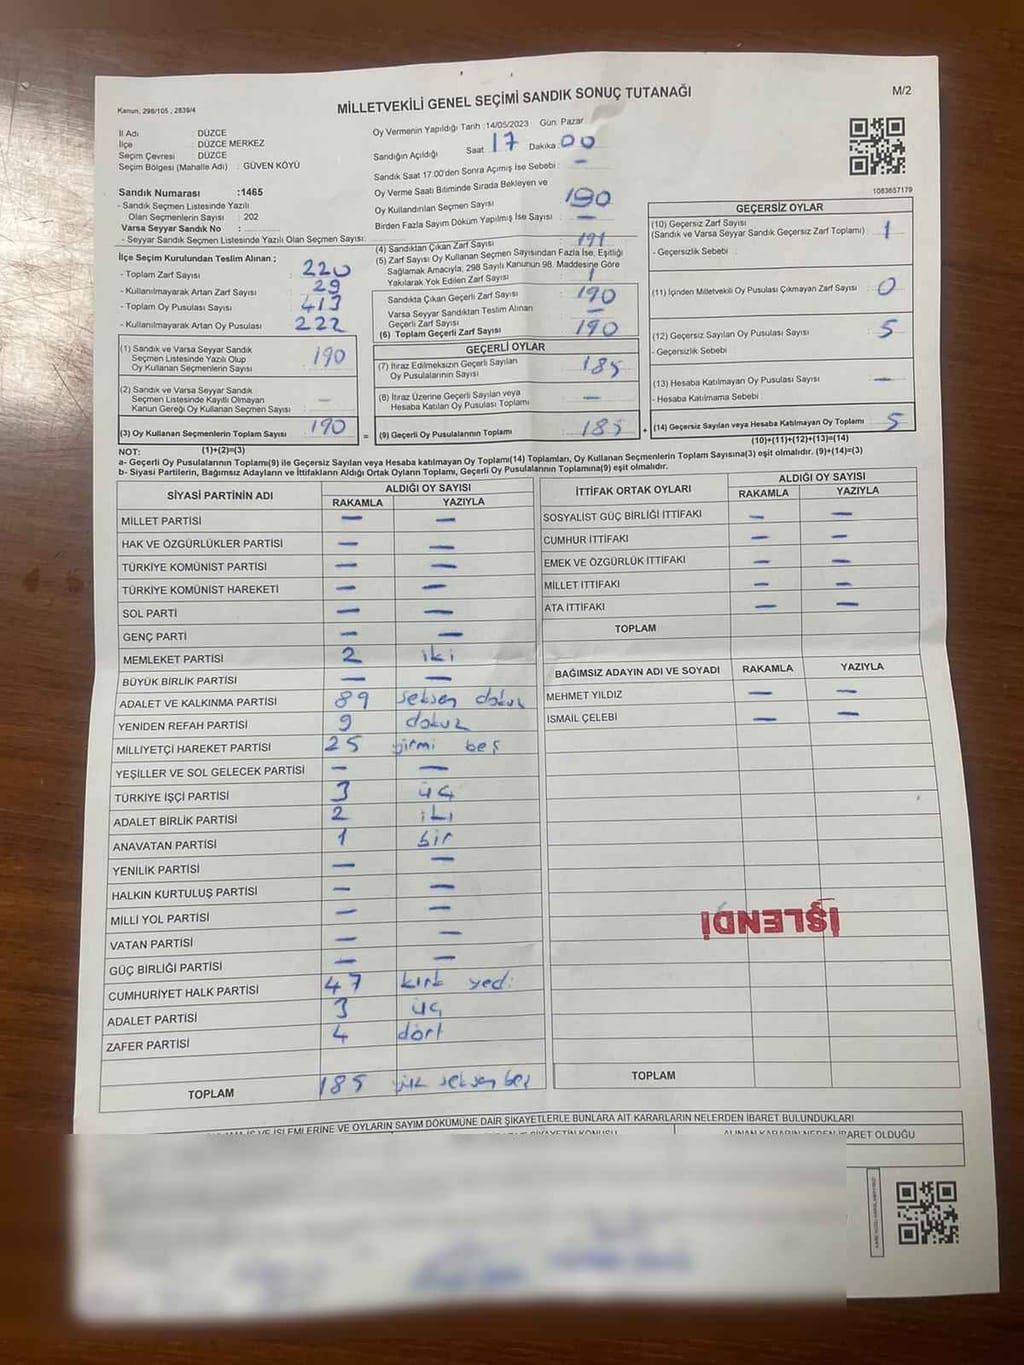 Kanun, 298/105 , 2839/4
MİLLETVEKİLİ GENEL SEÇİMİ SANDIK SONUÇ TUTANAĞI
M/2
İl Adı : DÜZCE
İlçe : DÜZCE MERKEZ
Seçim Çevresi : DÜZCE
Seçim Bölgesi (Mahalle Adı) : GÜVEN KÖYÜ
Sandık Numarası :1465
- Sandık Seçmen Listesinde Yazılı
Olan Seçmenlerin Sayısı : 202
Varsa Seyyar Sandık No :
- Seyyar Sandık Seçmen Listesinde Yazılı Olan Seçmen Sayısı:
Oy Vermenin Yapıldığı Tarih :14/05/2023 Gün: Pazar
Sandığın Açıldığı Saat: 17 Dakika: 00
Sandık Saat 17.00'den Sonra Açımış İse Sebebi : —
Oy Verme Saati Bitiminde Sırada Bekleyen ve
Oy Kullandırılan Seçmen Sayısı : 190
Birden Fazla Sayım Döküm Yapılmış İse Sayısı : —
1083657179
İlçe Seçim Kurulundan Teslim Alınan ;
- Toplam Zarf Sayısı : 220
- Kullanılmayarak Artan Zarf Sayısı : 29
- Toplam Oy Pusulası Sayısı : 413
- Kullanılmayarak Artan Oy Pusulası : 222
(1) Sandık ve Varsa Seyyar Sandık
Seçmen Listesinde Yazılı Olup
Oy Kullanan Seçmenlerin Sayısı : 190
(2) Sandık ve Varsa Seyyar Sandık
Seçmen Listesinde Kayıtlı Olmayan
Kanun Gereği Oy Kullanan Seçmen Sayısı : —
(3) Oy Kullanan Seçmenlerin Toplam Sayısı : 190
(4) Sandıktan Çıkan Zarf Sayısı : 191
(5) Zarf Sayısı Oy Kullanan Seçmen Sayısından Fazla İse, Eşitliği
Sağlamak Amacıyla, 298 Sayılı Kanunun 98. Maddesine Göre
Yakılarak Yok Edilen Zarf Sayısı : 1
Sandıkta Çıkan Geçerli Zarf Sayısı : 190
Varsa Seyyar Sandıktan Teslim Alınan
Geçerli Zarf Sayısı : —
(6) Toplam Geçerli Zarf Sayısı : 190
GEÇERLİ OYLAR
(7) İtiraz Edilmeksizin Geçerli Sayılan
Oy Pusulalarının Sayısı : 185
(8) İtiraz Üzerine Geçerli Sayılan veya
Hesaba Katılan Oy Pusulası Toplamı : —
= (9) Geçerli Oy Pusulalarının Toplamı : 185 +
GEÇERSİZ OYLAR
(10) Geçersiz Zarf Sayısı
(Sandık ve Varsa Seyyar Sandık Geçersiz Zarf Toplamı) : 1
- Geçersizlik Sebebi :
(11) İçinden Milletvekili Oy Pusulası Çıkmayan Zarf Sayısı : 0
(12) Geçersiz Sayılan Oy Pusulası Sayısı : 5
- Geçersizlik Sebebi :
(13) Hesaba Katılmayan Oy Pusulası Sayısı : —
- Hesaba Katılmama Sebebi :
(14) Geçersiz Sayılan veya Hesaba Katılmayan Oy Toplamı : 5
NOT: (1)+(2)=(3) (10)+(11)+(12)+(13)=(14)
a- Geçerli Oy Pusulalarının Toplamı(9) ile Geçersiz Sayılan veya Hesaba katılmayan Oy Toplamı(14) Toplamları, Oy Kullanan Seçmenlerin Toplam Sayısına(3) eşit olmalıdır. (9)+(14)=(3)
b- Siyasi Partilerin, Bağımsız Adayların ve İttifakların Aldığı Ortak Oyların Toplamı, Geçerli Oy Pusulalarının Toplamına(9) eşit olmalıdır.
SİYASİ PARTİNİN ADI
ALDIĞI OY SAYISI
RAKAMLA YAZIYLA
MİLLET PARTİSİ — —
HAK VE ÖZGÜRLÜKLER PARTİSİ — —
TÜRKİYE KOMÜNİST PARTİSİ — —
TÜRKİYE KOMÜNİST HAREKETİ — —
SOL PARTİ — —
GENÇ PARTİ — —
MEMLEKET PARTİSİ 2 iki
BÜYÜK BİRLİK PARTİSİ — —
ADALET VE KALKINMA PARTİSİ 89 seksen dokuz
YENİDEN REFAH PARTİSİ 9 dokuz
MİLLİYETÇİ HAREKET PARTİSİ 25 yirmi beş
YEŞİLLER VE SOL GELECEK PARTİSİ — —
TÜRKİYE İŞÇİ PARTİSİ 3 üç
ADALET BİRLİK PARTİSİ 2 iki
ANAVATAN PARTİSİ 1 bir
YENİLİK PARTİSİ — —
HALKIN KURTULUŞ PARTİSİ — —
MİLLİ YOL PARTİSİ — —
VATAN PARTİSİ — —
GÜÇ BİRLİĞİ PARTİSİ — —
CUMHURİYET HALK PARTİSİ 47 kırk yedi
ADALET PARTİSİ 3 üç
ZAFER PARTİSİ 4 dört
TOPLAM 185 yüz seksen beş
İTTİFAK ORTAK OYLARI
ALDIĞI OY SAYISI
RAKAMLA YAZIYLA
SOSYALİST GÜÇ BİRLİĞİ İTTİFAKI — —
CUMHUR İTTİFAKI — —
EMEK VE ÖZGÜRLÜK İTTİFAKI — —
MİLLET İTTİFAKI — —
ATA İTTİFAKI — —
TOPLAM
BAĞIMSIZ ADAYIN ADI VE SOYADI RAKAMLA YAZIYLA
MEHMET YILDIZ — —
İSMAİL ÇELEBİ — —
İŞLENDİ
TOPLAM
İŞLEMLERİNE VE OYLARIN SAYIM DÖKÜMÜNE DAİR ŞİKAYETLERLE BUNLARA AİT KARARLARIN NELERDEN İBARET BULUNDUKLARI
ŞİKAYETİN KONUSU ALINAN KARARIN NEDEN İBARET OLDUĞU